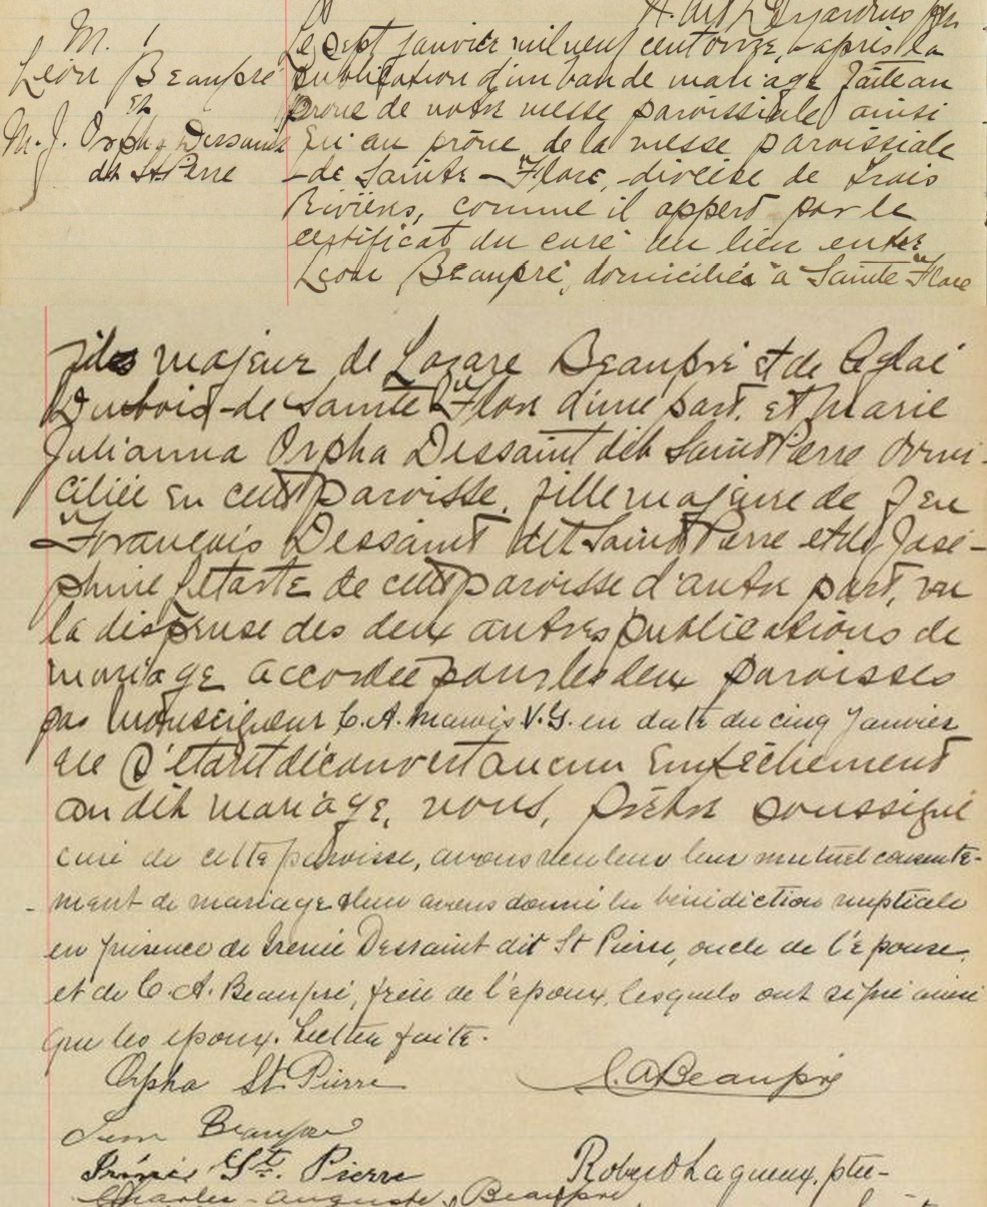 M. 1
Léon Beaupré
et
M. J. Orpha Dessaint
dit St Pierre
Le sept janvier mil neuf cent onze, après la
publication d'un ban de mariage faite au
prône de notre messe paroissiale ainsi
qu'au prône de la messe paroissiale
de Sainte-Flore, diocèse de Trois
Rivières, comme il appert par le
certificat du curé du lieu entre
Léon Beaupré, domicilié à Sainte Flore
fils majeur de Lazare Beaupré et de Aglaé
Dubois de Sainte Flore d'une part, et Marie
Julianna Orpha Dessaint dit Saint Pierre domi-
ciliée en cette paroisse, fille majeure de feu
François Dessaint dit Saint Pierre et de José-
phine Letarte de cette paroisse d'autre part, vu
la dispense des deux autres publications de
mariage accordée pour les deux paroisses
par Monseigneur C. A. Marois V. G. en date du cinq janvier
ne s'étant découvert aucun empêchement
au dit mariage, nous, prêtre soussigné
curé de cette paroisse, avons reçu leur mutuel consente-
ment de mariage et leur avons donné la bénédiction nuptiale
en présence de Irénée Dessaint dit St Pierre, oncle de l'épouse,
et de C. A. Beaupré, frère de l'époux, lesquels ont signé ainsi
que les époux. Lecture faite.
Orpha St. Pierre
C. A. Beaupré
Léon Beaupré
Irénée St. Pierre
Robert Lagueux, ptre-
Charles-Auguste Beaupré